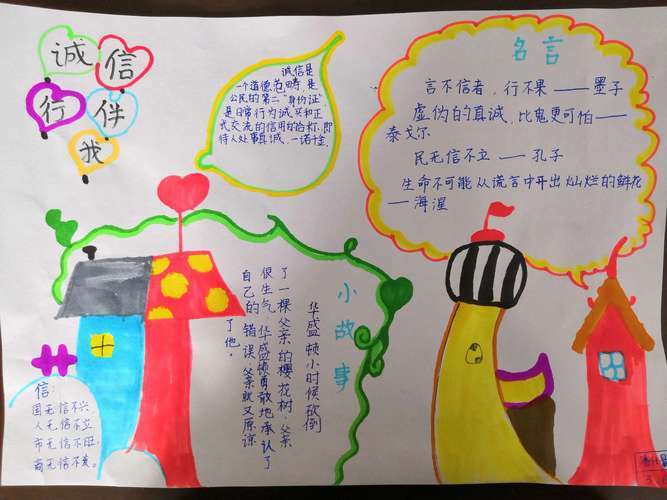 诚信
行伴
我
诚信是
一个道德范畴,是
公民的第二"身份证",
是日常行为诚实和正
式交流的信用的合称.即
待人处事真诚、一诺千金.
名言
言不信者，行不果——墨子
虚伪的真诚，比鬼更可怕——
泰戈尔
民无信不立——孔子
生命不可能从谎言中开出灿烂的鲜花
——海涅
小故事
华盛顿小时候砍倒
了一棵父亲的樱花树,父亲
很生气,华盛顿勇敢地承认了
自己的错误,父亲就又原谅
了他。
信:
国无信不兴、
人无信不立
市无信不旺、
商无信不发。